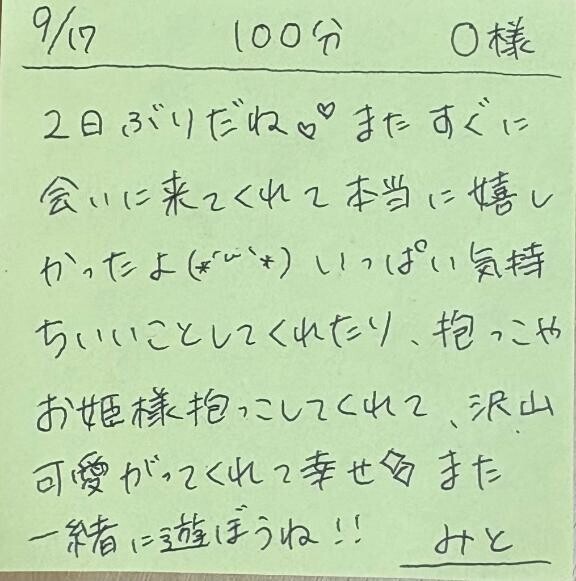 9/17 100分 O様
2日ぶりだね♡♡ また すぐに
会いに来てくれて本当に嬉し
かったよ(*´ω`*) いっぱい気持
ちいいことしてくれたり、抱っこや
お姫様抱っこしてくれて、沢山
可愛がってくれて幸せ また
一緒に遊ぼうね!!
みと